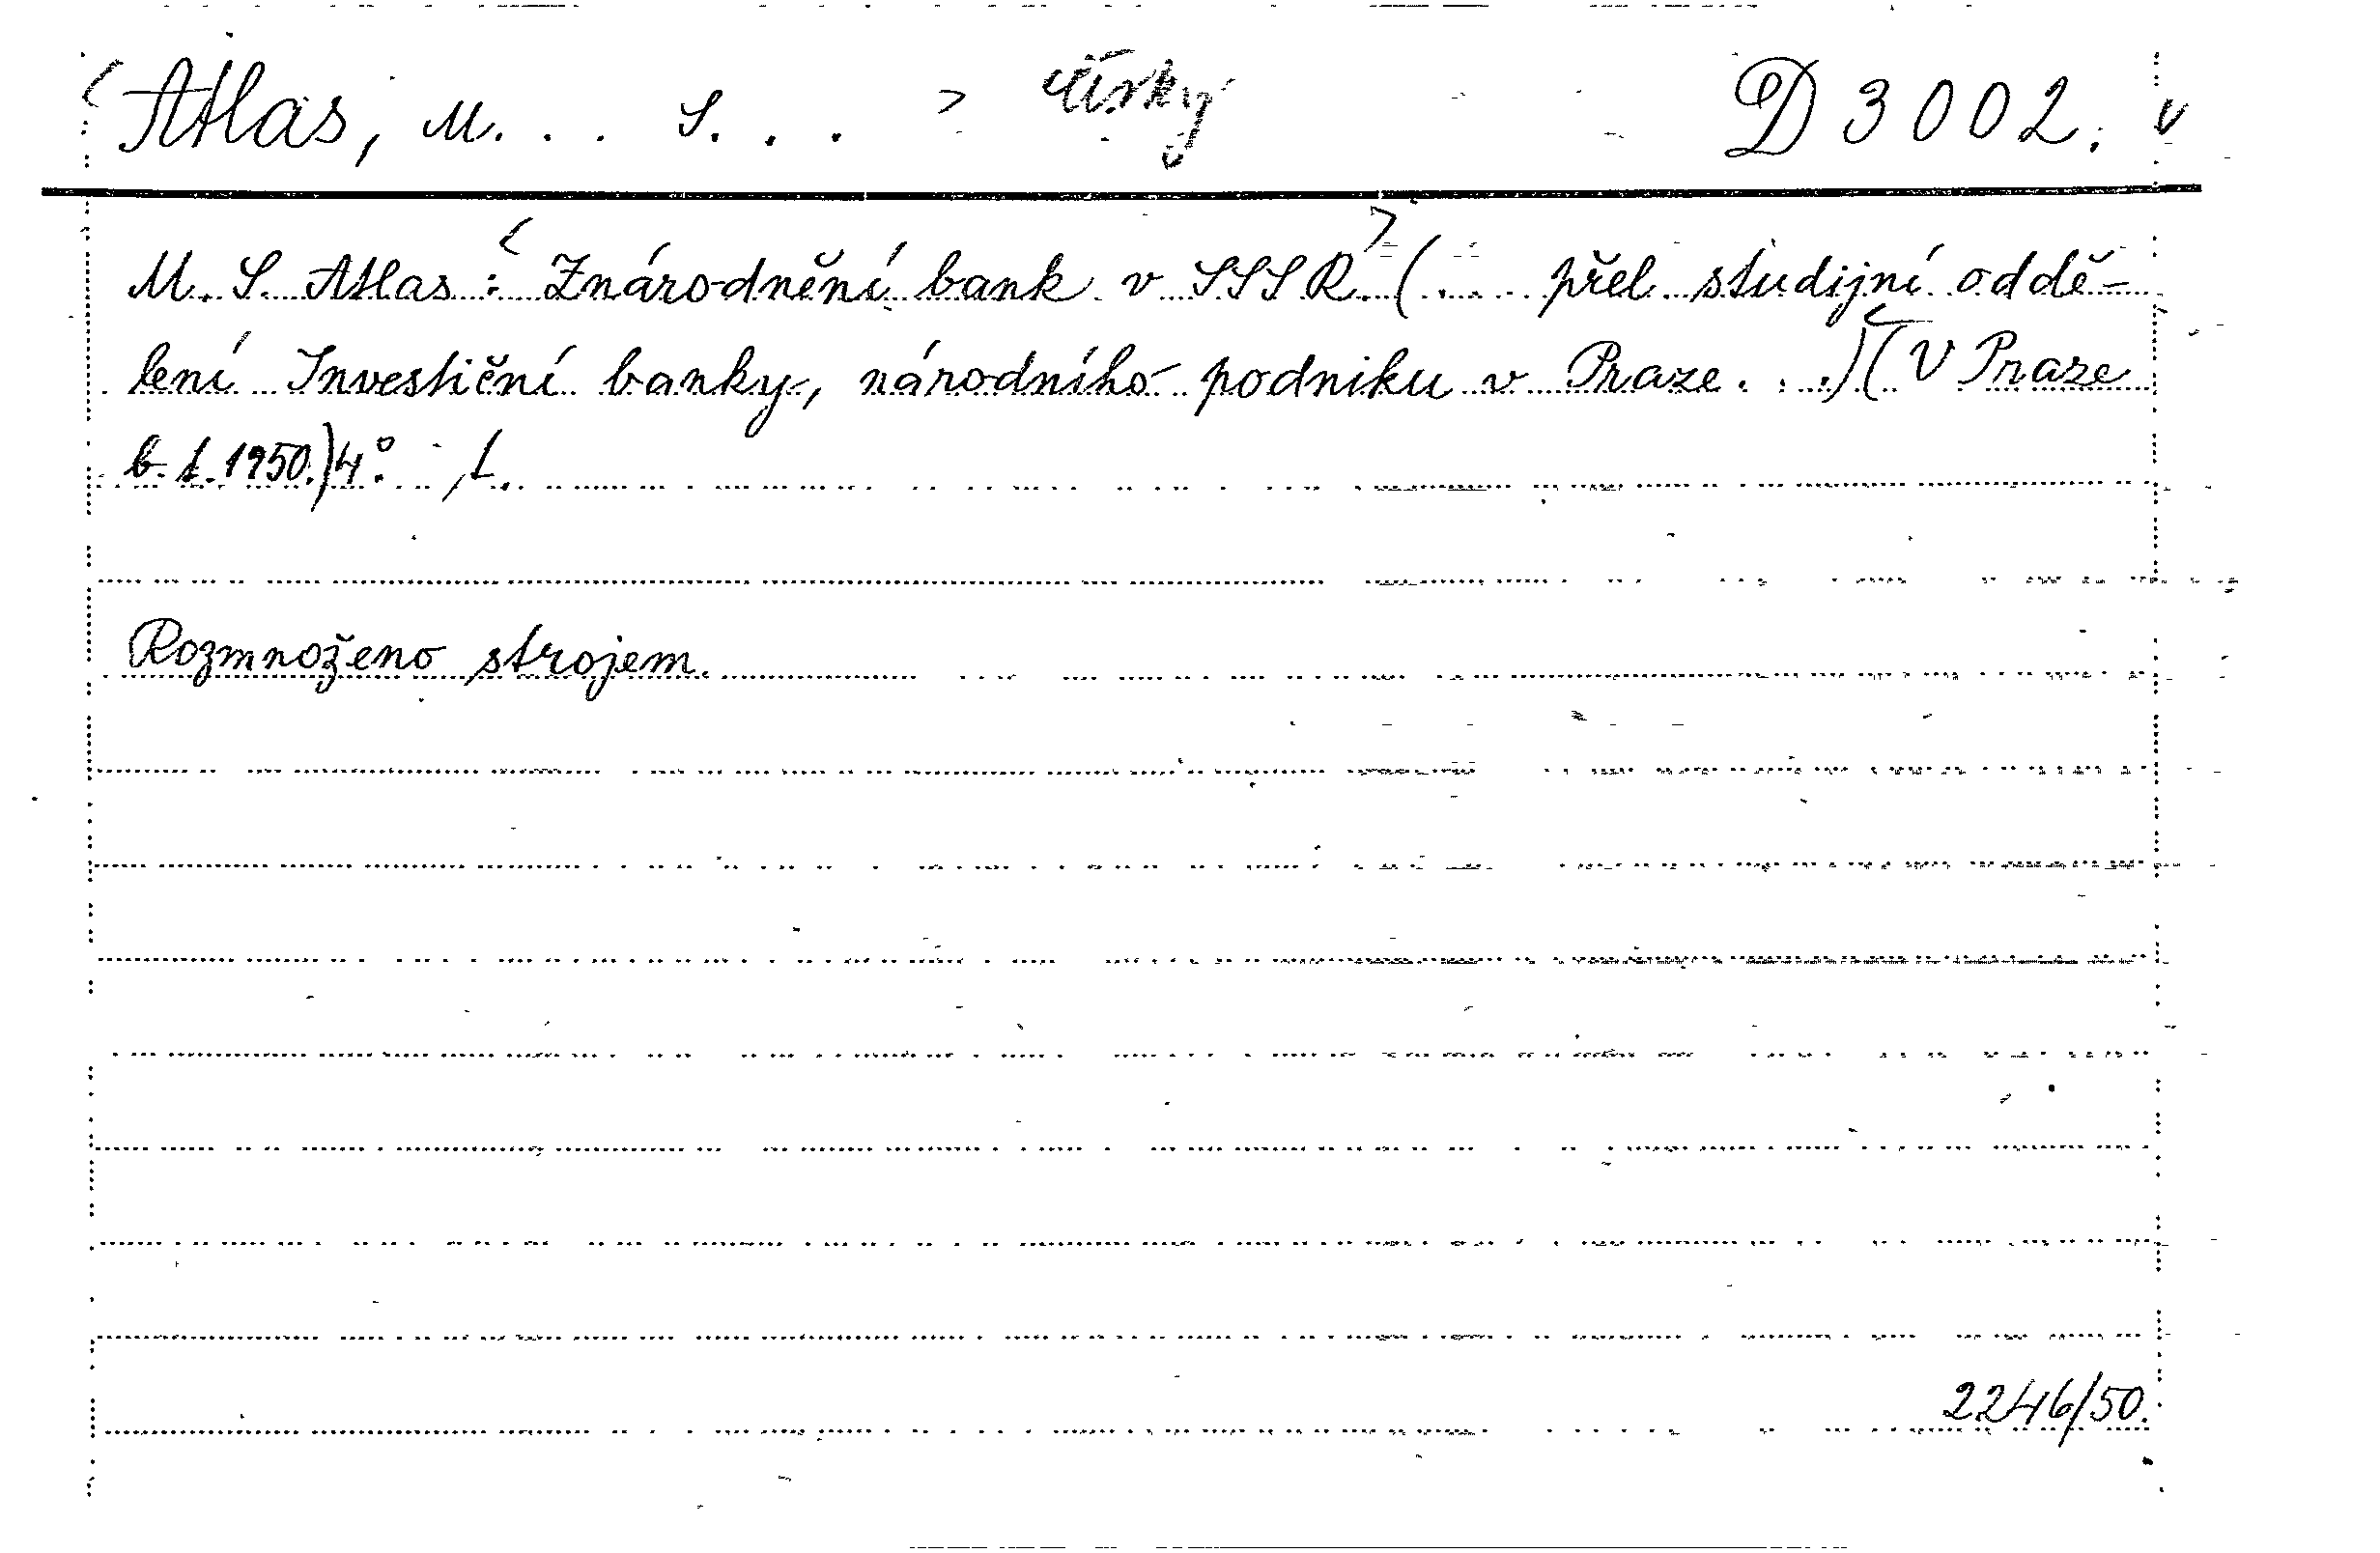 Atlas, M... S... česky D 3002.
M. S. Atlas: Znárodnění bank v SSSR. (... přel. studijní oddě-
lení Investiční banky, národního podniku v Praze...) (V Praze
b. t. 1950.) 4°.
Rozmnoženo strojem.
2246/50.